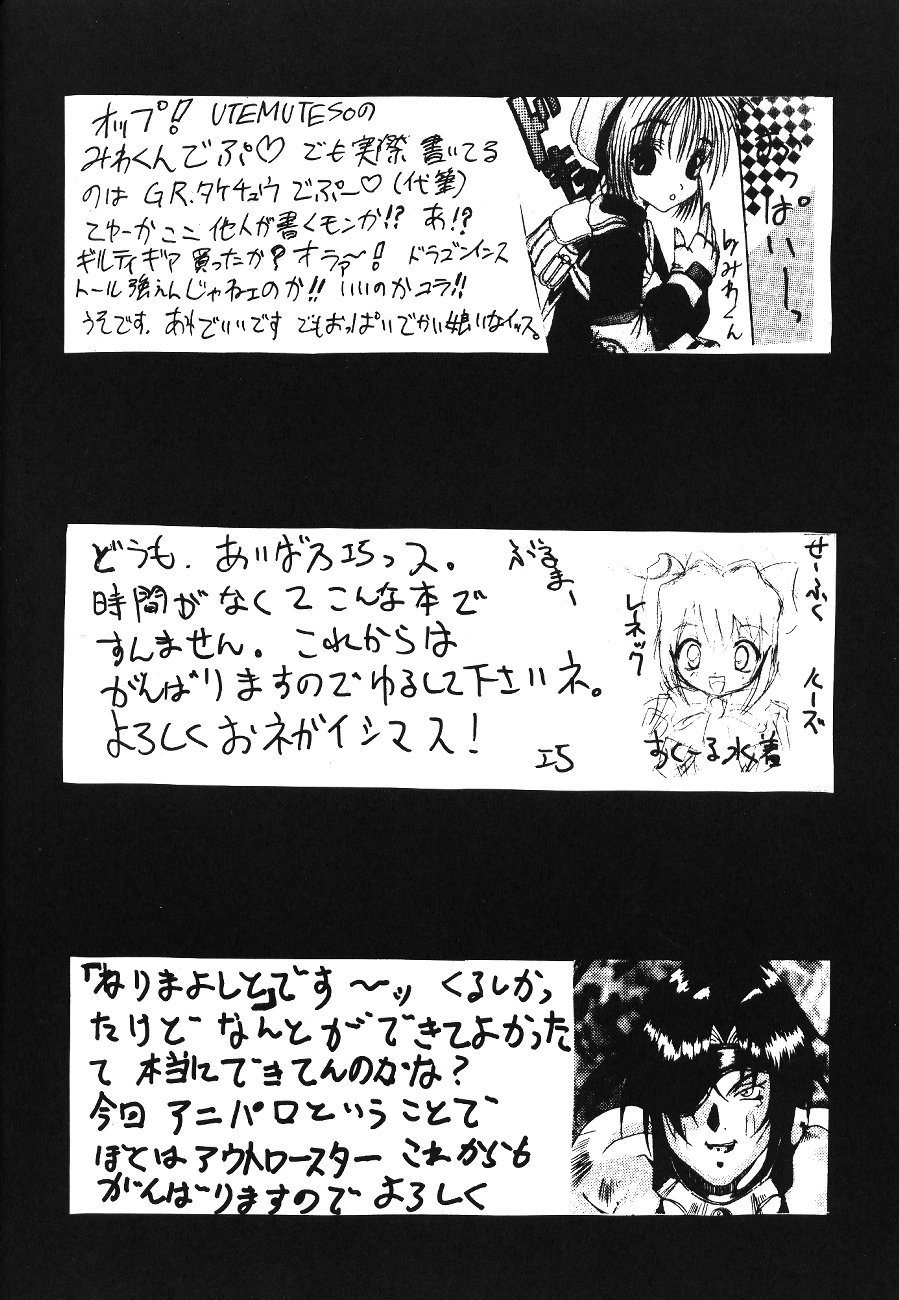 オップ! UTEMUTESOの
みわくんでぷ♡ でも実際 書いてる
のは G.R.タケチュウ でぷー♡(代筆)
てゆーか ここ 他人が書くモンか!? あ!?
ギルティギア 買ったか? オラァ〜! ドラゴンインス
トール強えんじゃねェのか!! いいのか コラ!!
うそです. あれでいいです でもおっぱいでかい娘いなイッス。
おっぱい〜っ
byみわくん
どうも. あいば巧っス。
時間がなくてこんな本で
すんません。これからは
がんばりますのでゆるして下さいネ。
よろしくおネガイシマス!
巧
ぶるまー
せーふく
レーネック
ルーズ
すくーる水着
「ねりまよしと」です〜ッ くるしかっ
たけど なんとかできてよかった
て 本当にできてんのかな?
今回 アニパロということで
ぼくはアウトロースター これからも
がんばりますので よろしく